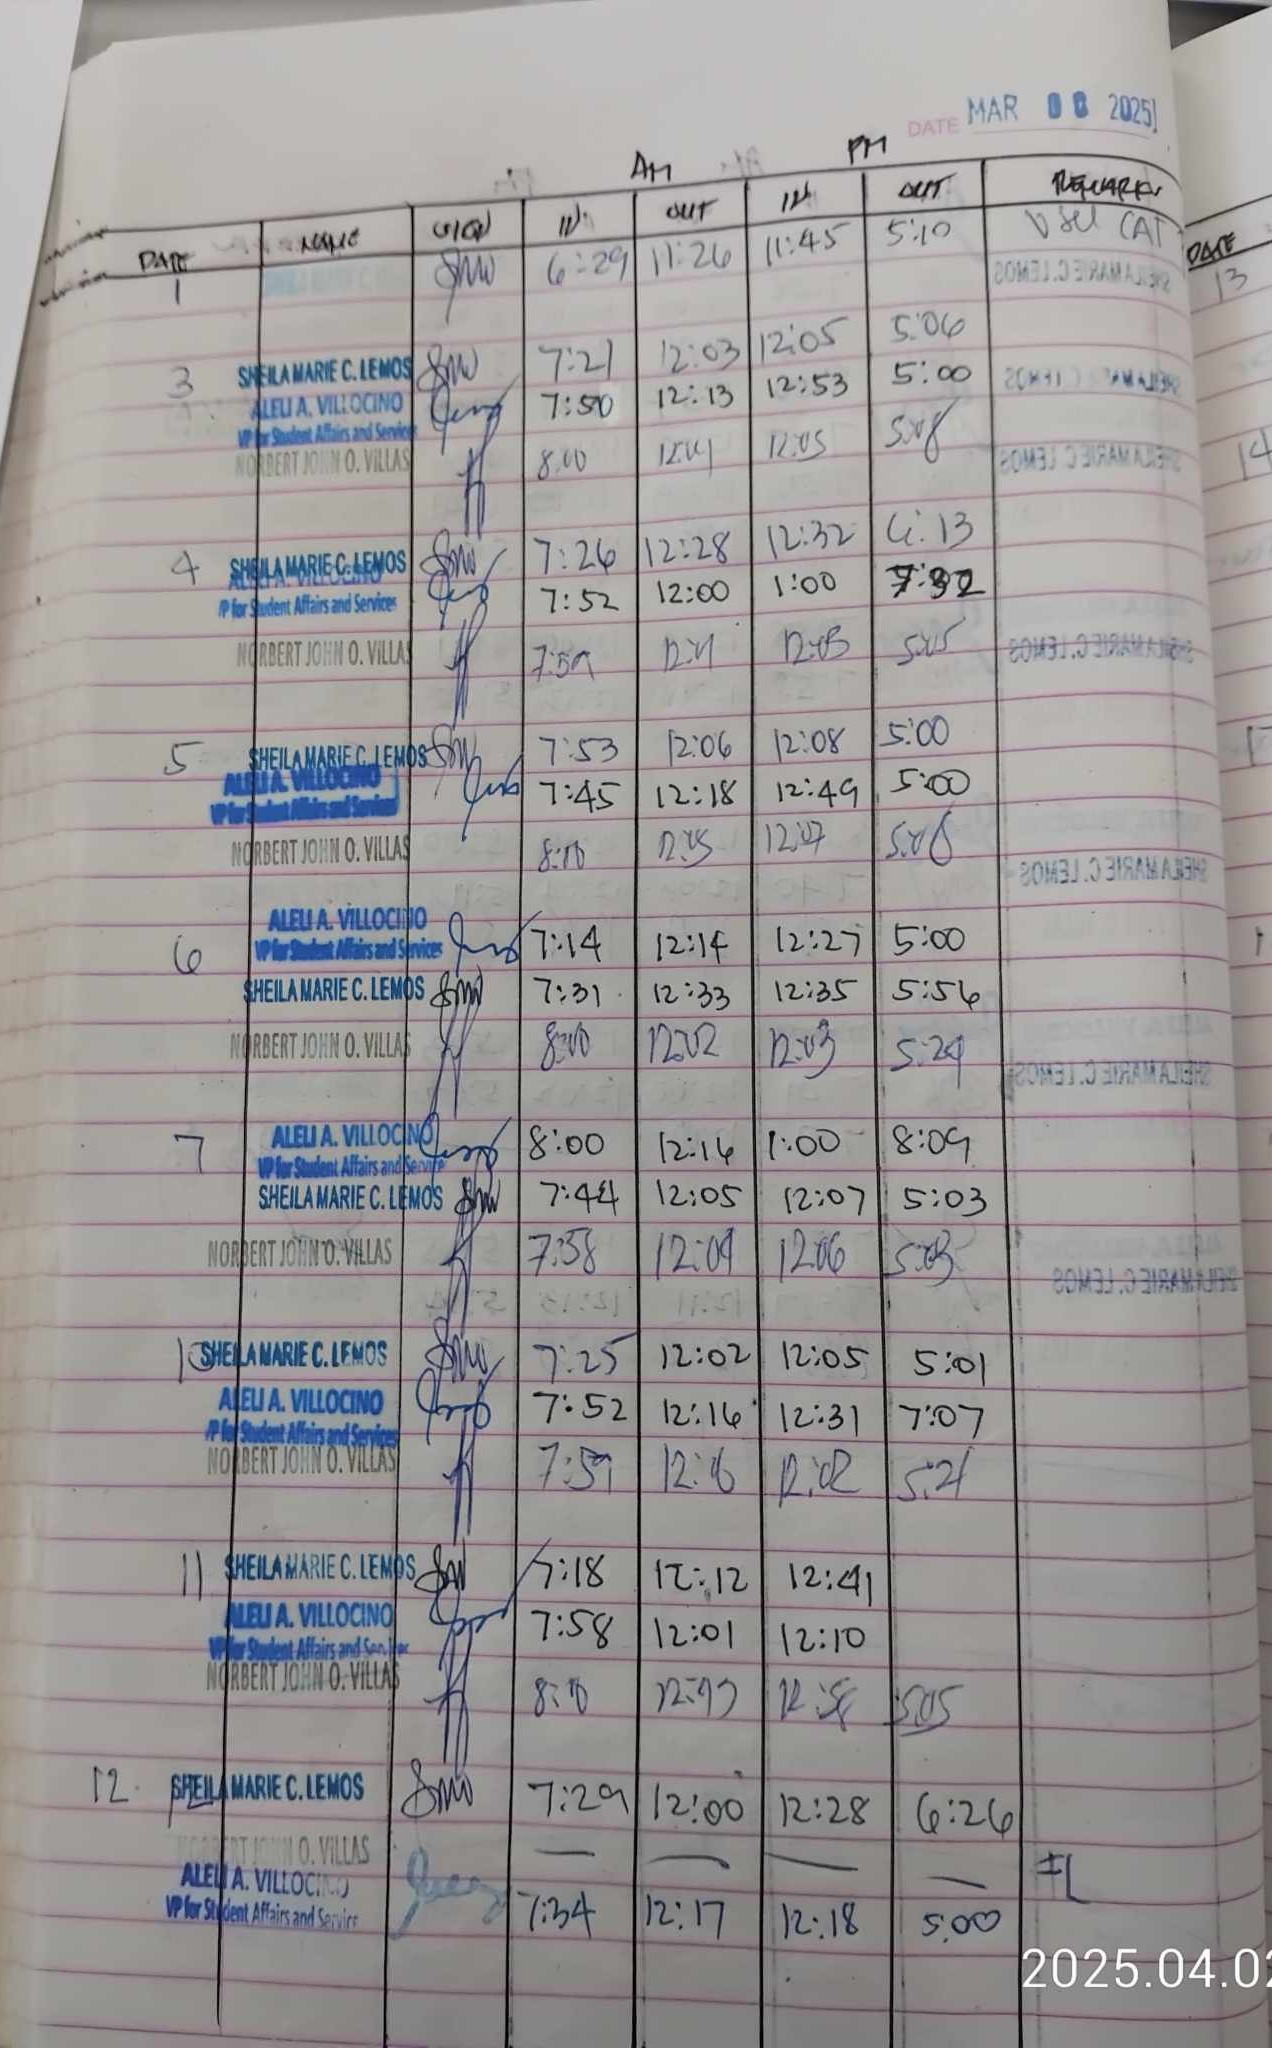 DATE MAR 2025
AM PM
DATE NAME SIGN IN OUT IN OUT REMARKS
1 6:29 11:26 11:45 5:10 CAT
3 SHEILA MARIE C. LEMOS 7:21 12:03 12:05 5:06
ALELI A. VILLOCINO 7:50 12:13 12:53 5:00
VP for Student Affairs and Services
NORBERT JOHN O. VILLAS 8:00 12:05
4 SHEILA MARIE C. LEMOS 7:26 12:28 12:32 6:13
ALELI A. VILLOCINO
VP for Student Affairs and Services 7:52 12:00 1:00 7:32
NORBERT JOHN O. VILLAS 7:59 12:03 5:05
5 SHEILA MARIE C. LEMOS 7:53 12:06 12:08 5:00
ALELI A. VILLOCINO 7:45 12:18 12:49 5:00
VP for Student Affairs and Services
NORBERT JOHN O. VILLAS 12:05 12:07
6 ALELI A. VILLOCINO 7:14 12:14 12:27 5:00
VP for Student Affairs and Services
SHEILA MARIE C. LEMOS 7:31 12:33 12:35 5:56
NORBERT JOHN O. VILLAS 8:00 12:02 12:03
7 ALELI A. VILLOCINO 8:00 12:16 1:00 8:09
VP for Student Affairs and Service
SHEILA MARIE C. LEMOS 7:44 12:05 12:07 5:03
NORBERT JOHN O. VILLAS 7:58 12:06 5:03
10 SHEILA MARIE C. LEMOS 7:25 12:02 12:05 5:01
ALELI A. VILLOCINO 7:52 12:16 12:31 7:07
VP for Student Affairs and Services
NORBERT JOHN O. VILLAS 7:59 12:02 5:21
11 SHEILA MARIE C. LEMOS 7:18 12:12 12:41
ALELI A. VILLOCINO 7:58 12:01 12:10
VP for Student Affairs and Services
NORBERT JOHN O. VILLAS 12:58 5:05
12 SHEILA MARIE C. LEMOS 7:29 12:00 12:28 6:26
NORBERT JOHN O. VILLAS — — — —
ALELI A. VILLOCINO
VP for Student Affairs and Service 7:34 12:17 12:18 5:00
DATE
13
14
2025.04.02